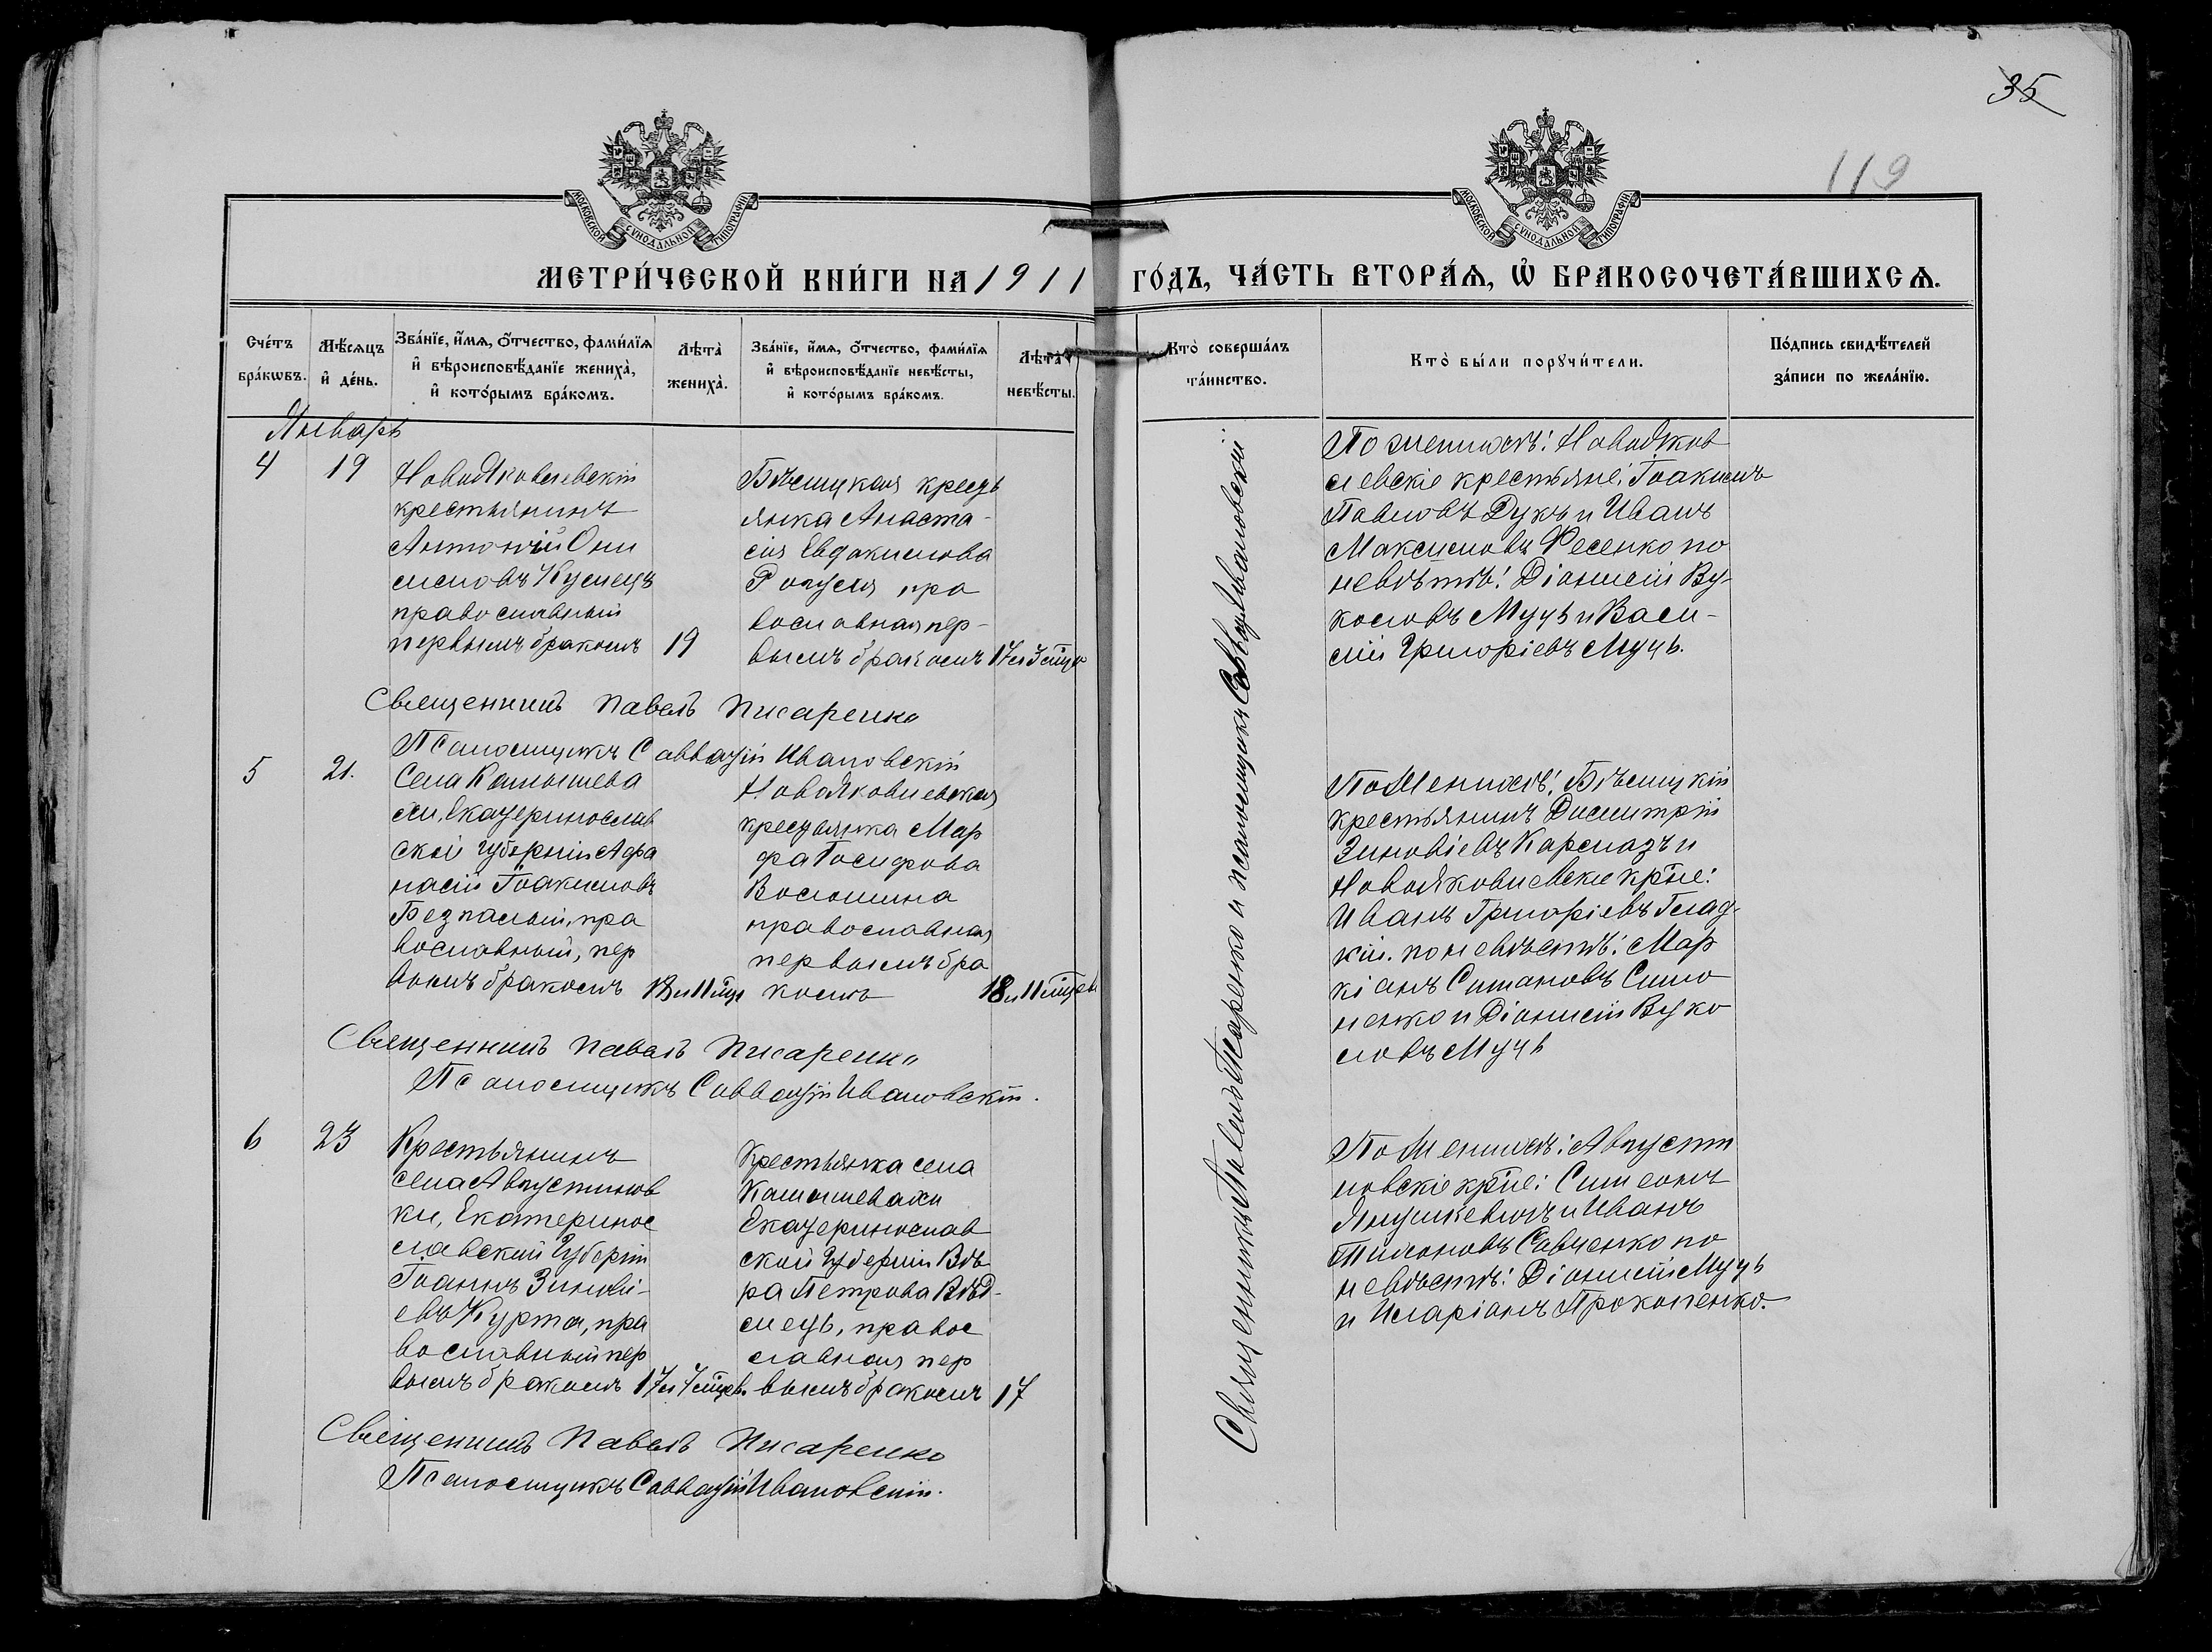 35
119
МОСКОВСКОЙ СѴНОДАЛЬНОЙ ТИПОГРАФІИ
МОСКОВСКОЙ СѴНОДАЛЬНОЙ ТИПОГРАФІИ
МЕТРИ́ЧЕСКОЙ КНИ́ГИ НА 1911 ГО́ДЪ, ЧА́СТЬ ВТОРА́Ѧ, Ѡ҆ БРАКОСОЧЕТА́ВШИХСѦ.
Сче́тъ бра́кѡвъ.
Мѣ́сѧцъ и҆ де́нь.
Зва́нїе, и҆́мѧ, ѻ҆́тчество, фами́лїѧ и҆ вѣроисповѣ́данїе жениха̀, и҆ кото́рымъ бра́комъ.
Лѣта̀ жениха̀.
Зва́нїе, и҆́мѧ, ѻ҆́тчество, фами́лїѧ и҆ вѣроисповѣ́данїе невѣ́сты, и҆ кото́рымъ бра́комъ.
Лѣта̀ невѣ́сты.
Кто̀ соверша́лъ та́инство.
Кто̀ бы́ли порꙋчи́тели.
По́дпись свидѣ́телей за́писи по жела́нїю.
Январь
4 19
НовоЯковлевскій
крестьянинъ
Антоній Они
симовъ Кумецъ
православный
первымъ бракомъ 19
Бѣлицкая кресть
янка Анаста-
сія Евдокимова
пра
вославная пер-
вымъ бракомъ 17
По женихѣ: НовоЯков
левскіе крестьяне: Іоакимъ
Павловъ Дукъ и Иванъ
Максимовъ Фесенко по
невѣстѣ: Діонисій Ву-
коловъ Мучь и Васи-
лій Григоріевъ Мучь.
Священникъ Павелъ Писаренко
Псаломщикъ Савватій Ивановскій
5 21.
Села Камышева
хи, Екатеринослав
ской губерніи Афа
насій Іоакимовъ
Безпалый, пра
вославный, пер
вымъ бракомъ 18 и 11 мцв
НовоЯковлевская
крестьянка Мар
фа Іосифова
Волошина
православная
первымъ бра
комъ 18 и 11 мцев
По Женихѣ: Бѣлицкій
крестьянинъ Димитрій
Зиновіевъ Кармазъ и
НовоЯковлевскіе крне:
Иванъ Григоріевъ Глад-
кій. по невѣстѣ: Мар
кіанъ Симо
ненко и Діонисій Вуко
ловъ Мучь
Священникъ Павелъ Писаренко
Псаломщикъ Савватій Ивановскій.
6 23
Крестьянинъ
села Августинов
ки, Екатеринос
лавской Губерніи
Іоаннъ Зинові-
евъ Курта, пра
вославный пер
вымъ бракомъ 17 и 7 мцев.
Крестьянка села
Камышевахи
Екатеринослав
ской Губерніи Вѣ
ра Петрова Вѣд-
медь, правос
лавная пер
вымъ бракомъ 17
По Женихѣ: Августи
новскіе крне: Симеонъ
Янушкевичъ и Иванъ
Тимоновъ Савченко по
невѣстѣ: Діонисій Мучь
и Иларіонъ Прокопенко.
Священникъ Павелъ Писаренко
Псаломщикъ Савватій Ивановскій.
Священникъ Павелъ Писаренко и псаломщикъ Савватій Ивановскій